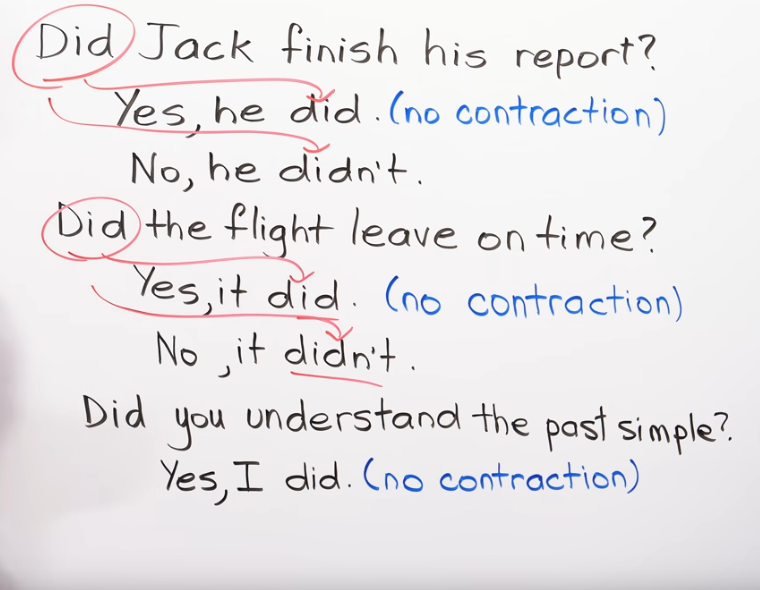 Did Jack finish his report?
Yes, he did. (no contraction)
No, he didn't.
Did the flight leave on time?
Yes, it did. (no contraction)
No, it didn't.
Did you understand the past simple?
Yes, I did. (no contraction)